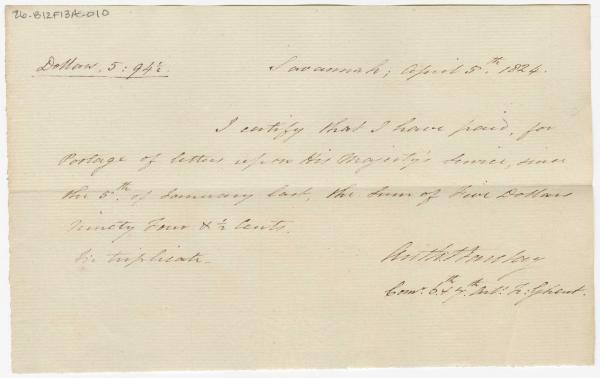 26-B12F13AC-010
Dollars, 5: 94½.
Savannah, April 5th 1824.
I certify that I have paid, for
Postage of letters upon His Majesty's Service, since
the 5th of January last, the Sum of Five Dollars
Ninety Four & ½ Cents.
In triplicate
Comr. 6th & 7th Arts. Tr: Ghent.